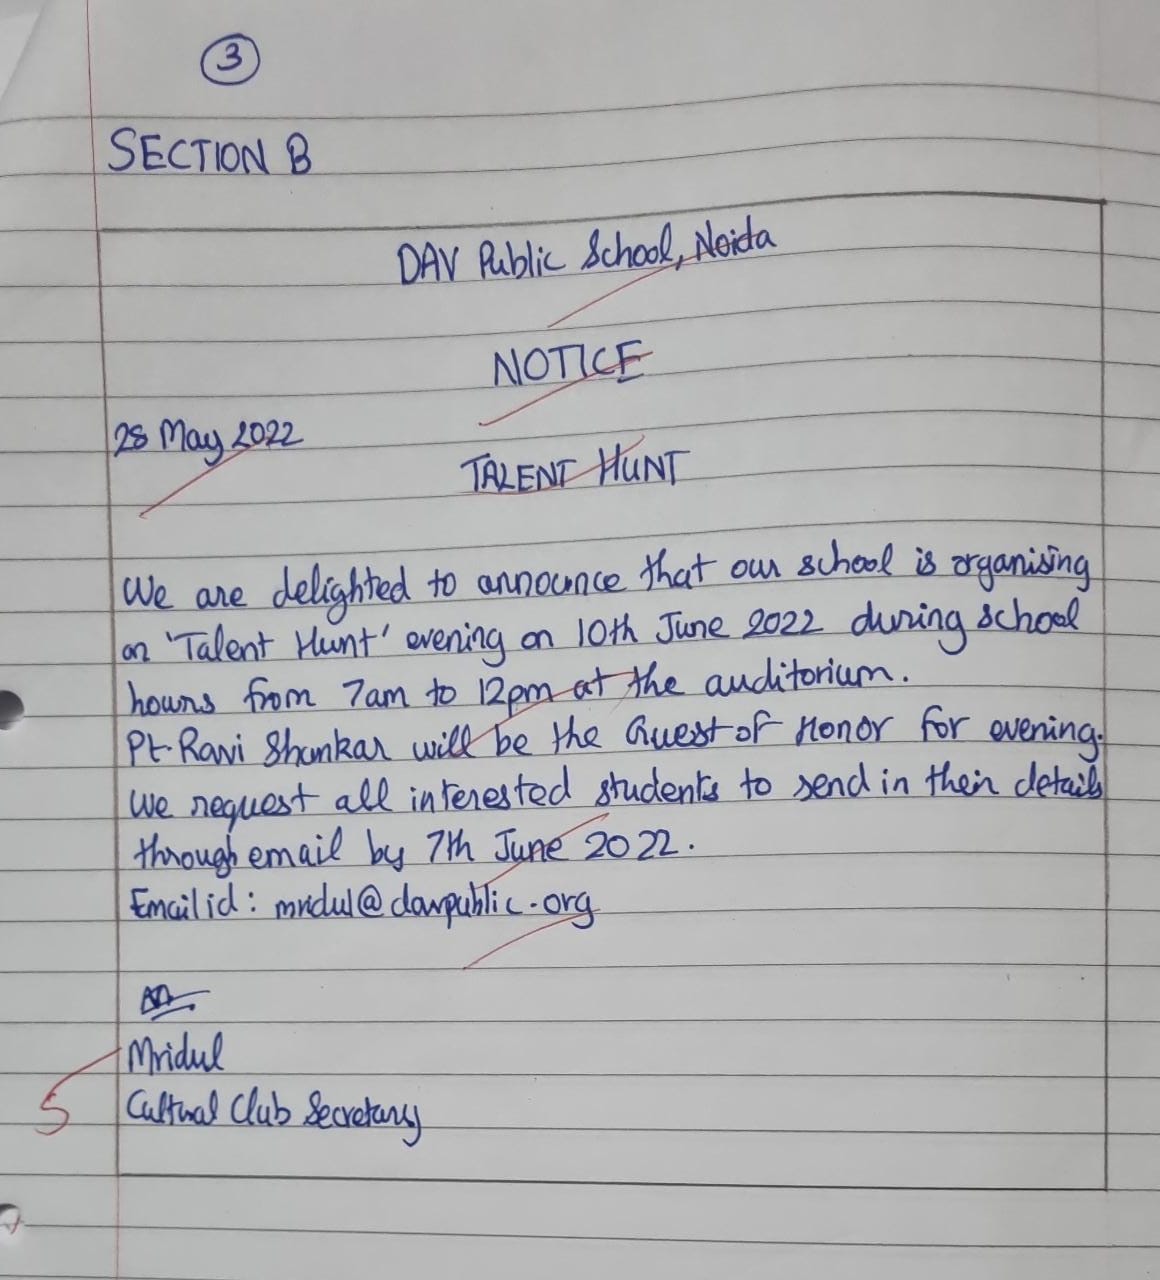 3
SECTION B
DAV Public School, Noida
NOTICE
28 May 2022
TALENT HUNT
We are delighted to announce that our school is organising
an 'Talent Hunt' evening on 10th June 2022 during school
hours from 7am to 12pm at the auditorium.
Pt. Ravi Shankar will be the Guest of Honor for evening.
We request all interested students to send in their details
through email by 7th June 2022.
Email id: mridul@davpublic.org
Mridul
Cultural Club Secretary
5